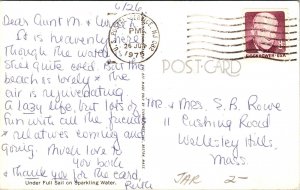 6/26
Dear Aunt M & 
It is heavenly here
Though the water
still quite cold but the
beach is lovely & the
air is rejuvenating
A lazy life, but lots of
fun with all the 
& relatives coming and
going. Much love to
you both
& thank you for the card,
Under Full Sail on Sparkling Water.
PM
26 JUN
1975
POST CARD
EISENHOWER · USA
Mr & Mrs. S. B. Rowe
11 Cushing Road
Wellesley Hills,
Mass